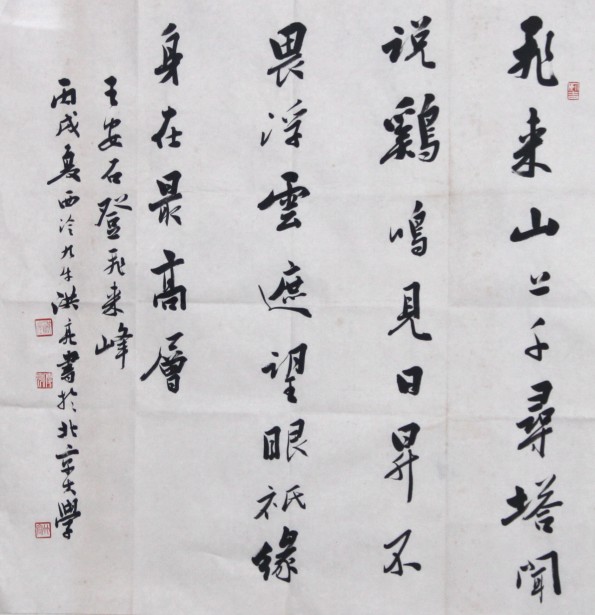 飛来山上千尋塔聞
説鷄鳴見日昇不
畏浮雲遮望眼祇緣
身在最高層
王安石登飛来峰
丙戌夏西泠九牛洪亮書於北京大學